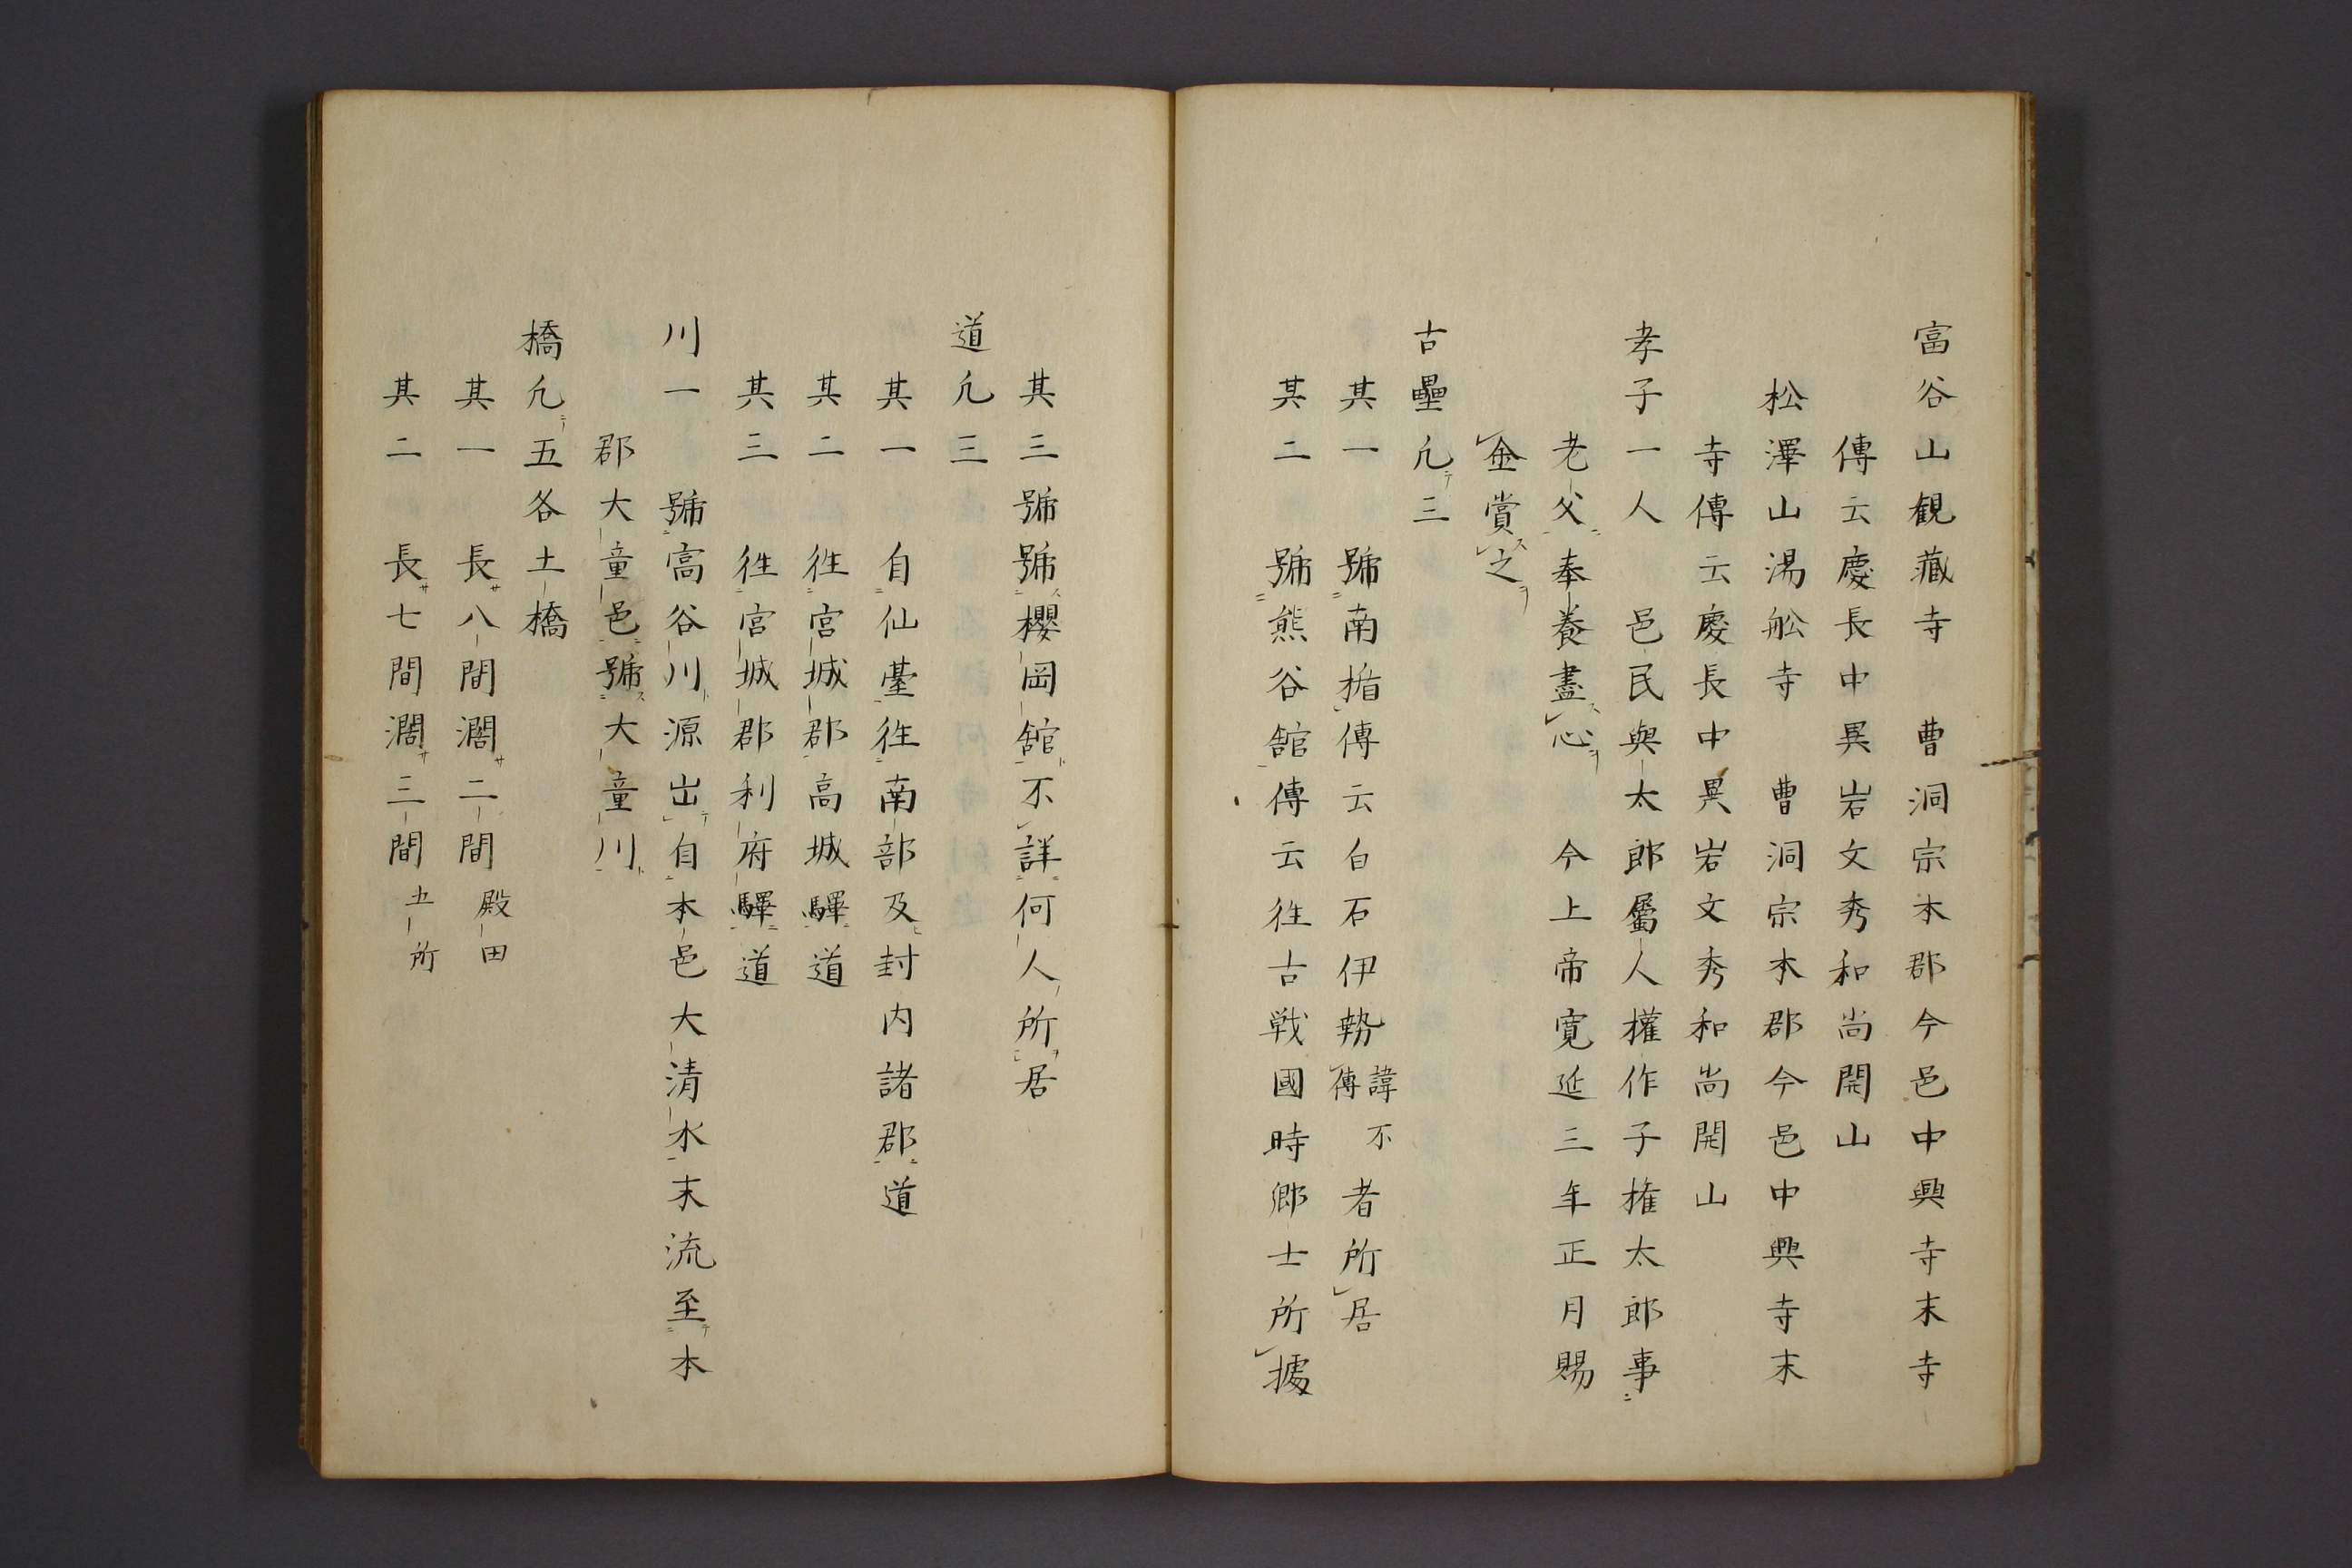 富谷山観藏寺　曹洞宗本郡今邑中興寺末寺
傳云慶長中異岩文秀和尚開山
松澤山湯舩寺　曹洞宗本郡今邑中興寺末
寺傳云慶長中異岩文秀和尚開山
孝子一人　邑民與太郎屬人權作子権太郎事
老父奉養盡心　今上帝寛延三年正月賜
金賞之
古壘凢三
其一　號南楯傳云白石伊勢諱不傳者所居
其二　號熊谷舘傳云徃古戦國時郷士所據
其三號號櫻岡舘不詳何人所居
道凢三
其一　自仙臺徃南部及封内諸郡道
其二　徃宮城郡高城驛道
其三　徃宮城郡利府驛道
川一　號富谷川源出自本邑大清水末流至本
郡大童邑號大童川
橋凢五各土橋
其一　長八間濶二間　殿田
其二　長七間濶三間　五所